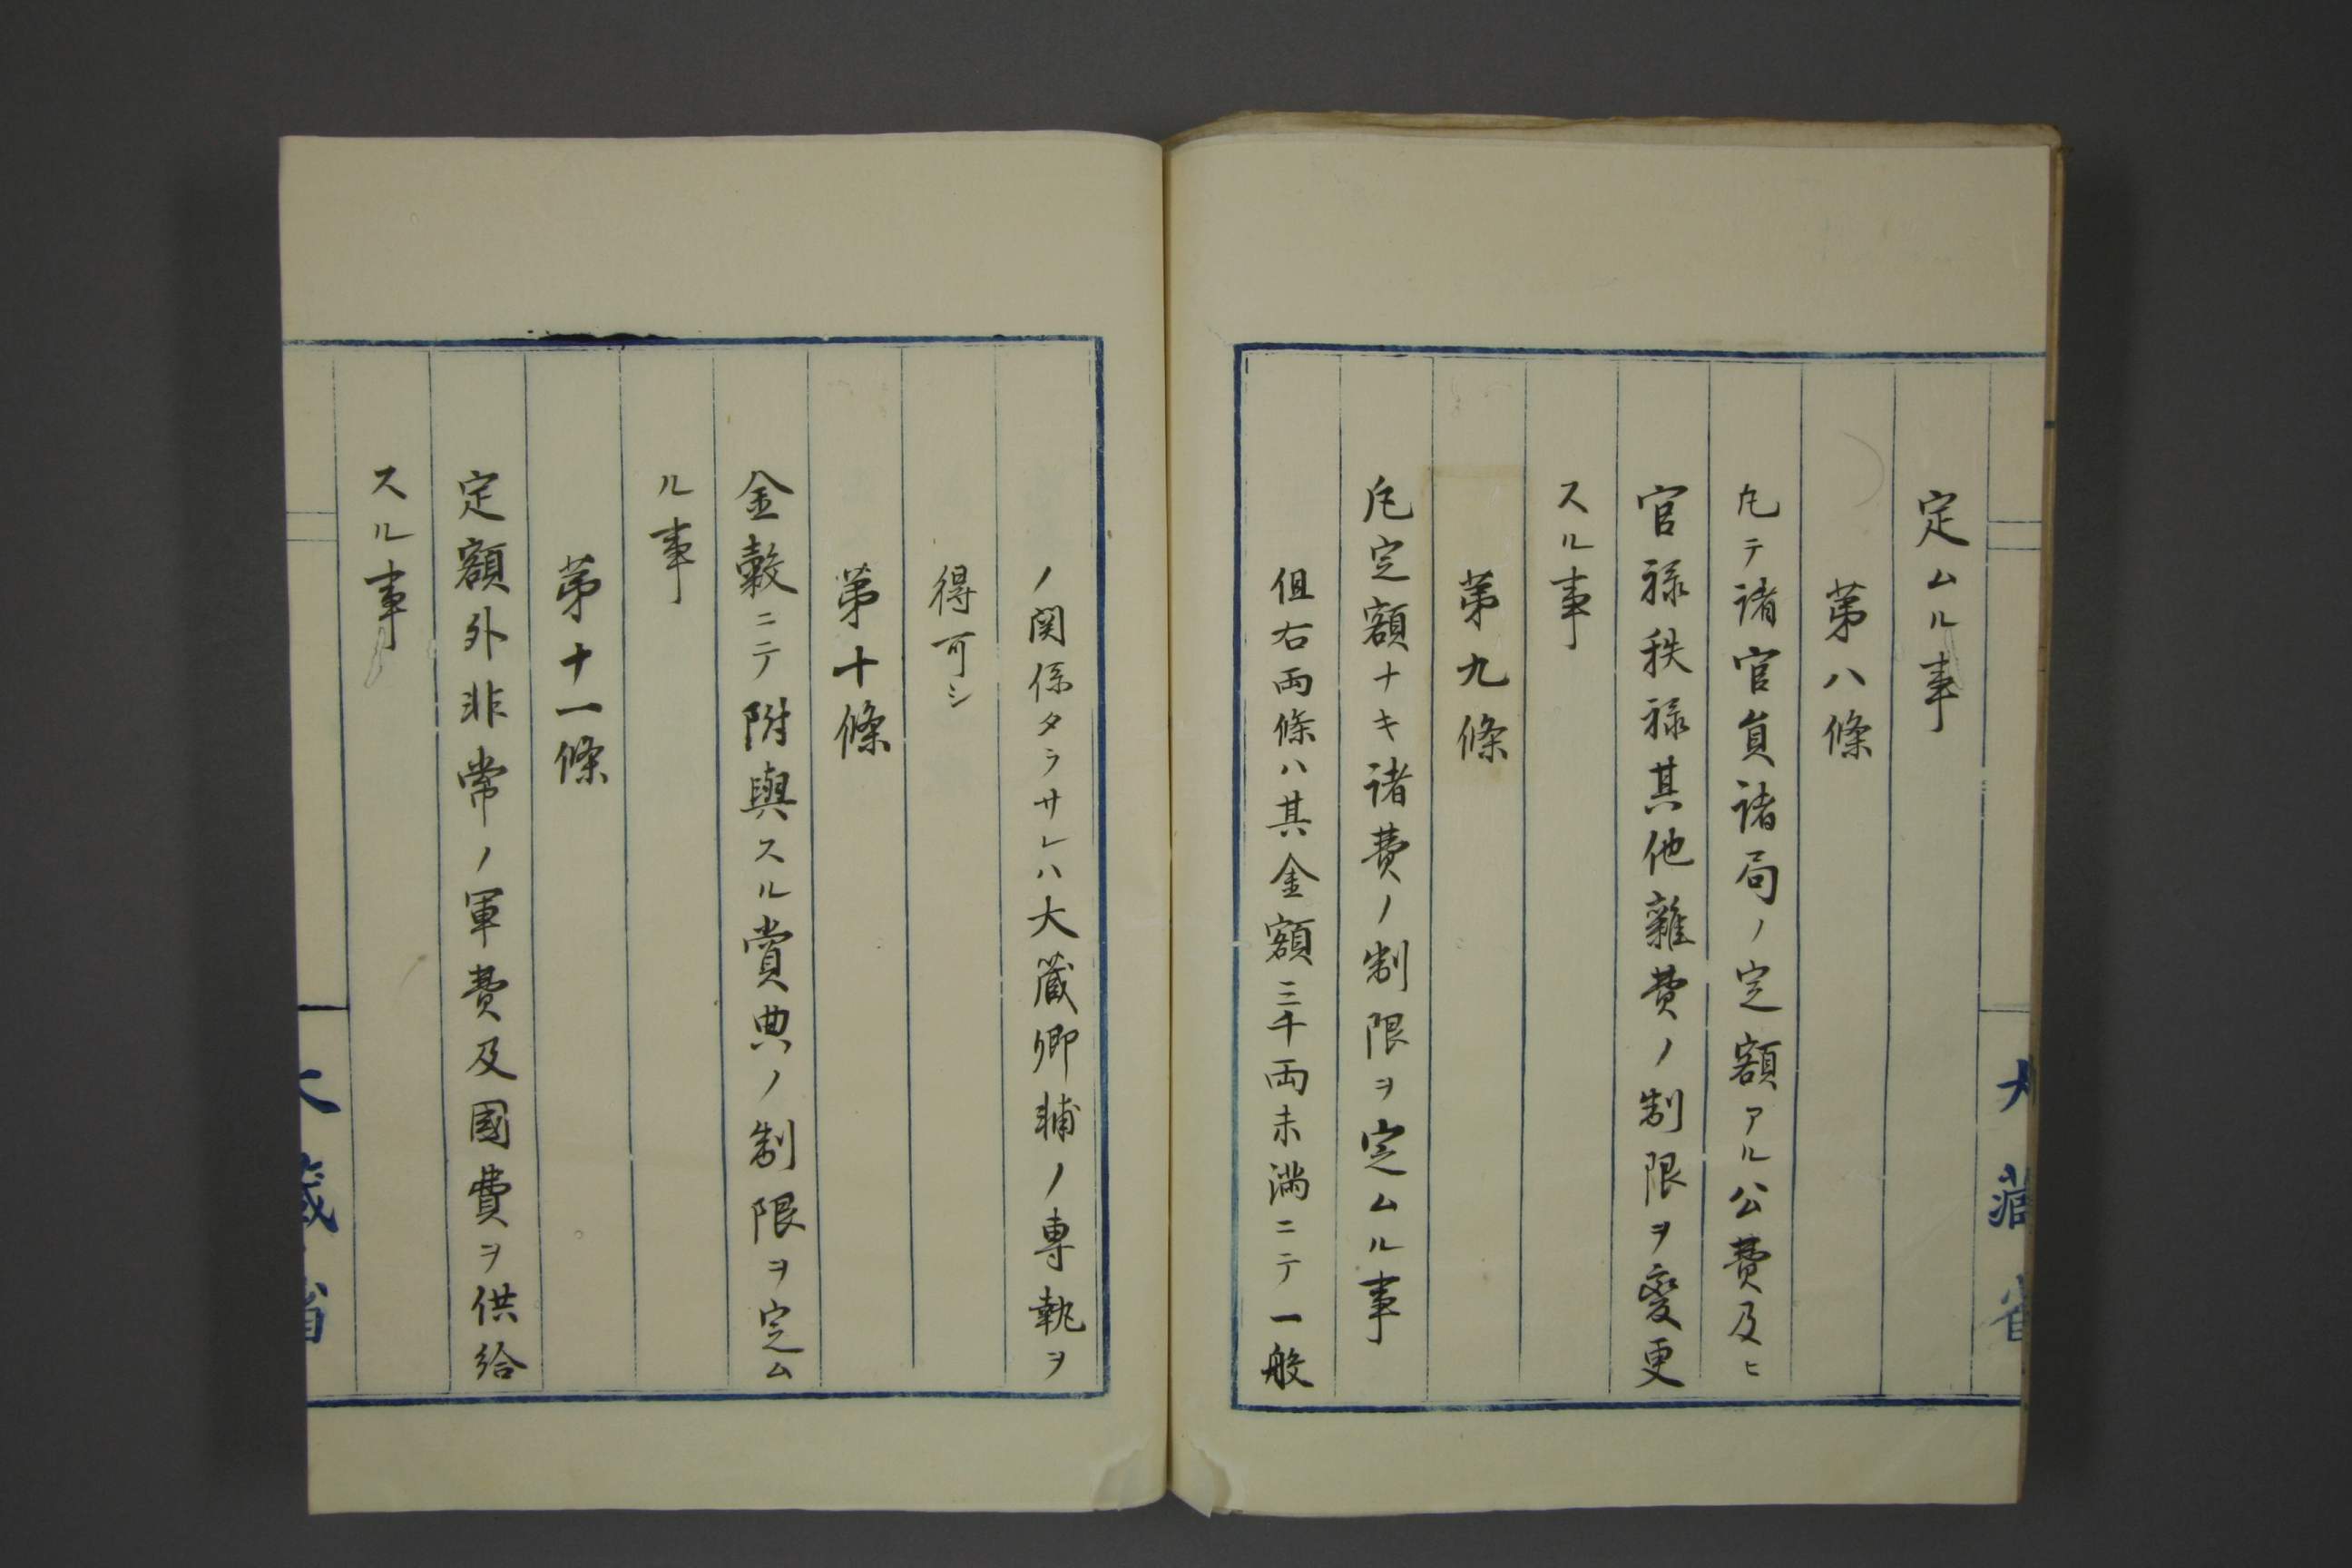 定ムル事
第八條
凡テ諸官員諸局ノ定額アル公費及ヒ
官祿秩祿其他雜費ノ制限ヲ變更
スル事
第九條
凡定額ナキ諸費ノ制限ヲ定ムル事
但右両條ハ其金額三千両未満ニテ一般
ノ関係タラサレハ大藏卿輔ノ専執ヲ
得可シ
第十條
金穀ニテ附與スル賞典ノ制限ヲ定ム
ル事
第十一條
定額外非常ノ軍費及國費ヲ供給
スル事
大藏省
大藏省